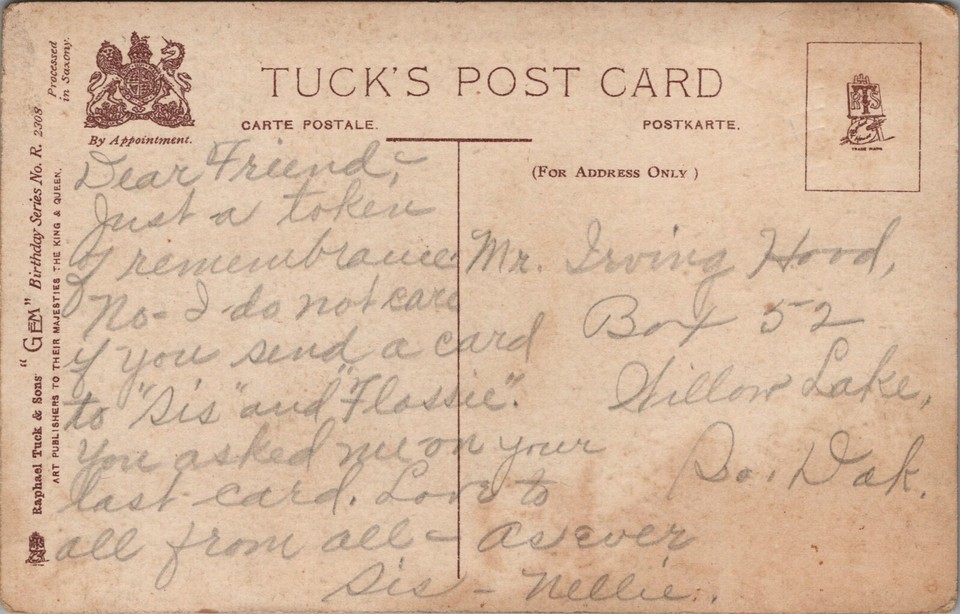 Processed
in Saxony.
By Appointment.
TUCK'S POST CARD
CARTE POSTALE.
POSTKARTE.
(FOR ADDRESS ONLY)
RTS
TRADE MARK
Raphael Tuck & Sons' "GEM" Birthday Series No. R. 2308
ART PUBLISHERS TO THEIR MAJESTIES THE KING & QUEEN.
Dear Friend,-
Just a token
of remembrance
No- I do not care
if you send a card
to "Sis" and "Flossie".
You asked me on your
last card. Love to
all from all - As ever
Sis - Nellie..
Mr. Irving Hood,
Box 52
Willow Lake,
So. Dak.